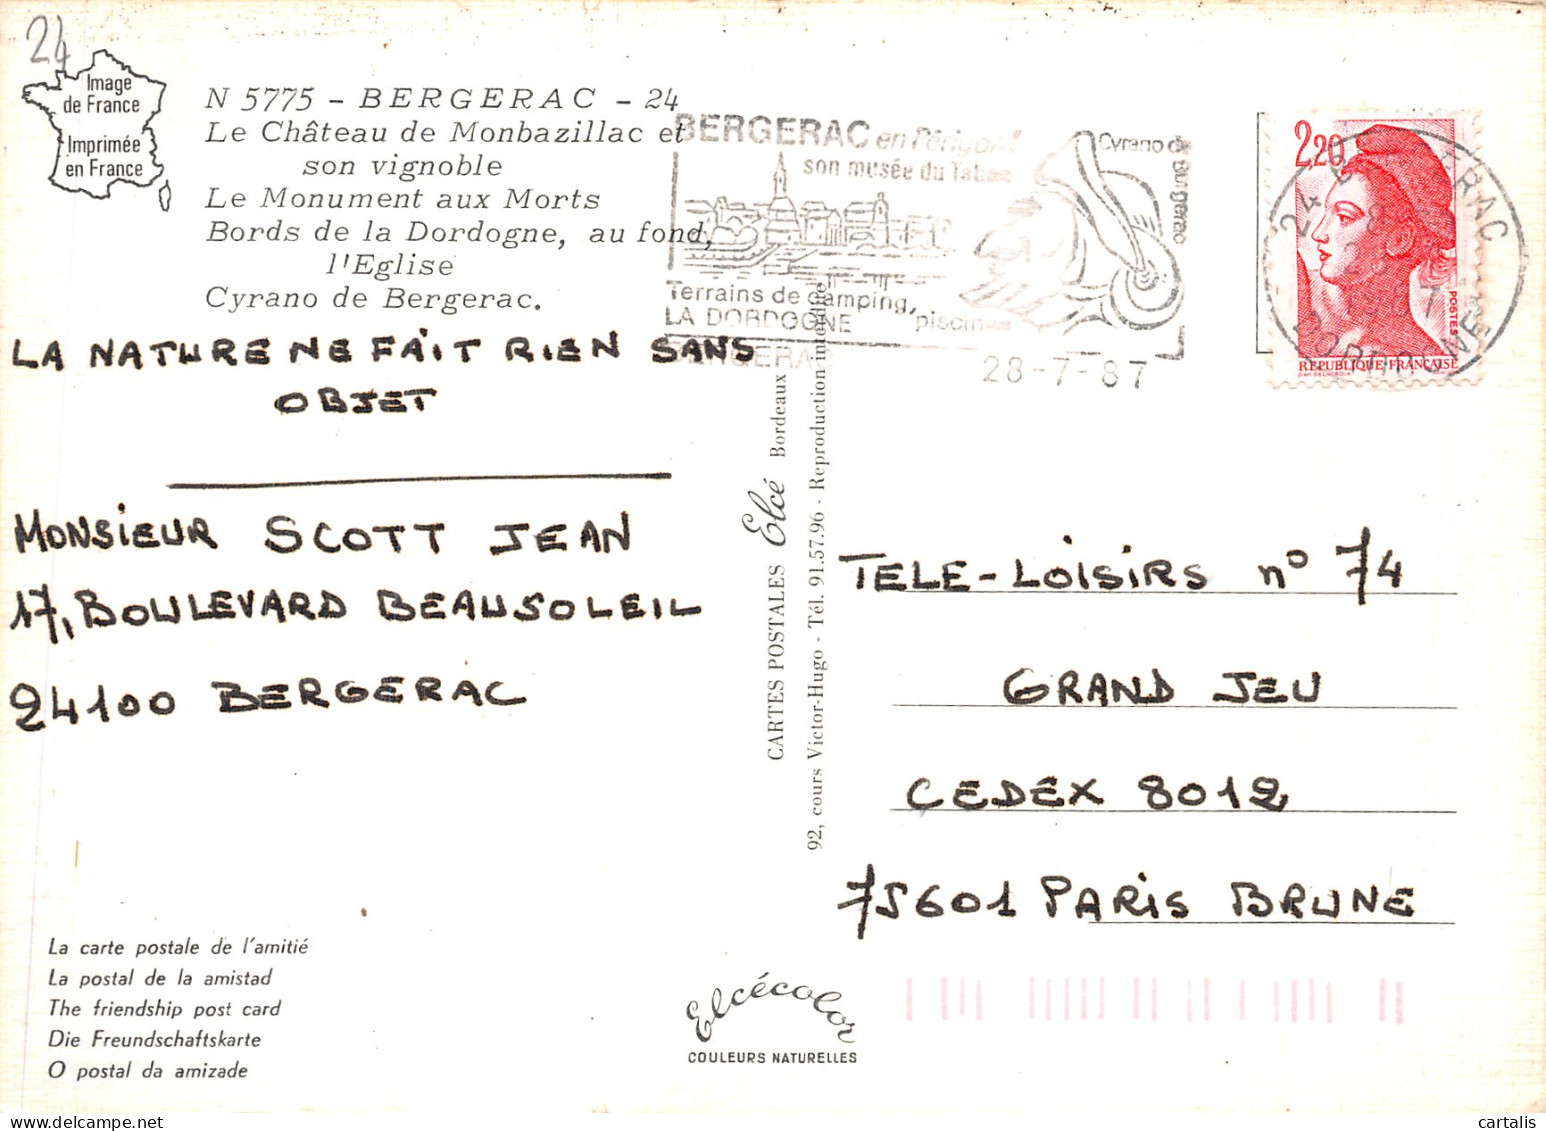 24
Image
de France
Imprimée
en France
N 5775 - BERGERAC - 24
Le Château de Monbazillac et
son vignoble
Le Monument aux Morts
Bords de la Dordogne, au fond,
l'Eglise
Cyrano de Bergerac.
LA NATURE NE FAIT RIEN SANS
OBJET
MONSIEUR SCOTT JEAN
17, BOULEVARD BEAUSOLEIL
24100 BERGERAC
La carte postale de l'amitié
La postal de la amistad
The friendship post card
Die Freundschaftskarte
O postal da amizade
CARTES POSTALES Elcé Bordeaux
92, cours Victor-Hugo - Tél. 91.57.96 - Reproduction interdite
Elcécolor
COULEURS NATURELLES
BERGERAC en Périgord
son musée du Tabac
Cyrano de Bergerac
Terrains de camping,
LA DORDOGNE piscine
BERGERAC
28-7-87
2,20
POSTES
REPUBLIQUE FRANÇAISE
24 BERGERAC
1987
DORDOGNE
TELE-LOISIRS n° 74
GRAND JEU
CEDEX 8012
75601 PARIS BRUNE
cartalis